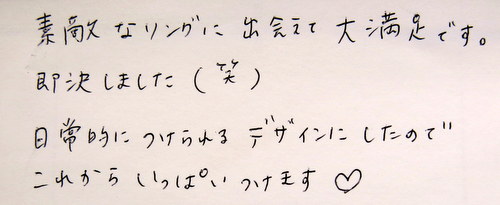 素敵なリングに出会えて大満足です。
即決しました(笑)
日常的につけられるデザインにしたので
これからいっぱいつけます♡